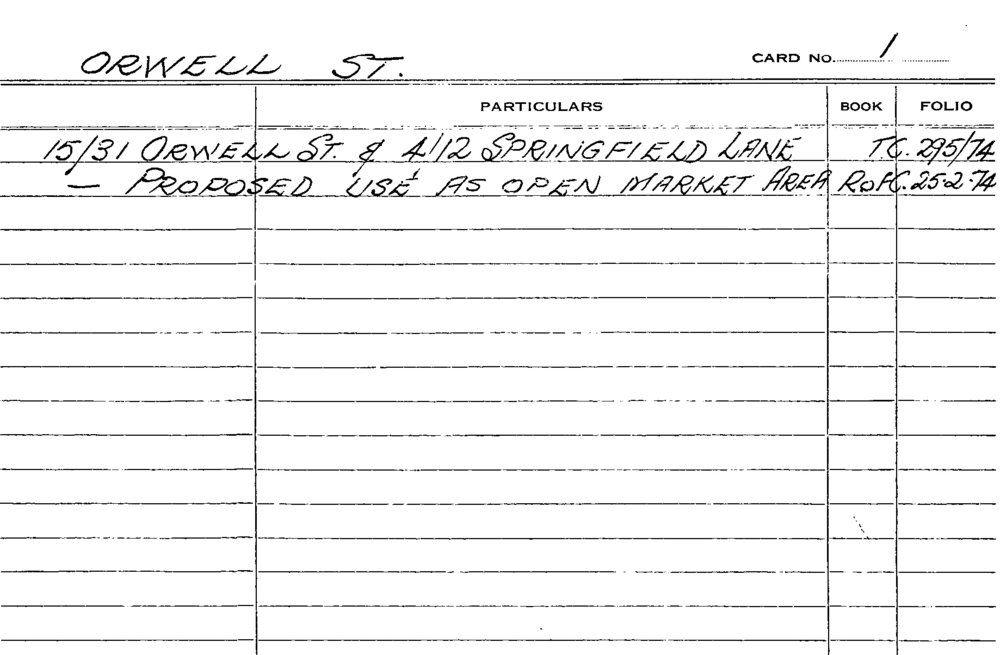 ORWELL ST. CARD No. 1
PARTICULARS BOOK FOLIO
15/31 ORWELL ST. & 4/12 SPRINGFIELD LANE TC. 295/74
— PROPOSED USE AS OPEN MARKET AREA RofC. 25·2·74